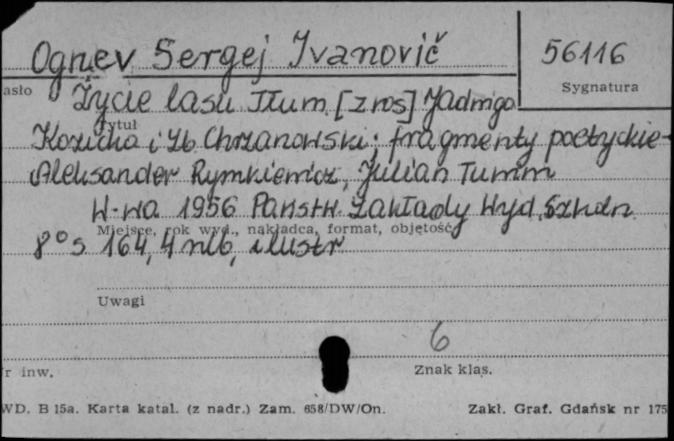 Ognev Sergej Ivanovič
56116
asło
Sygnatura
Życie lasu Tłum. [z ros] Jadwiga
Tytuł
i Zb. Chrzanowski; fragmenty poetyckie -
Aleksander Rymkiewicz, Julian Tuwim
W-wa 1956 Państw. Zakłady Wyd. Szkoln.
Miejsce, rok wyd., nakładca, format, objętość
8° s 164, 4 nlb, ilustr
Uwagi
6
r inw.
Znak klas.
WD. B 15a. Karta katal. (z nadr.) Zam. 658/DW/On.
Zakł. Graf. Gdańsk nr 175